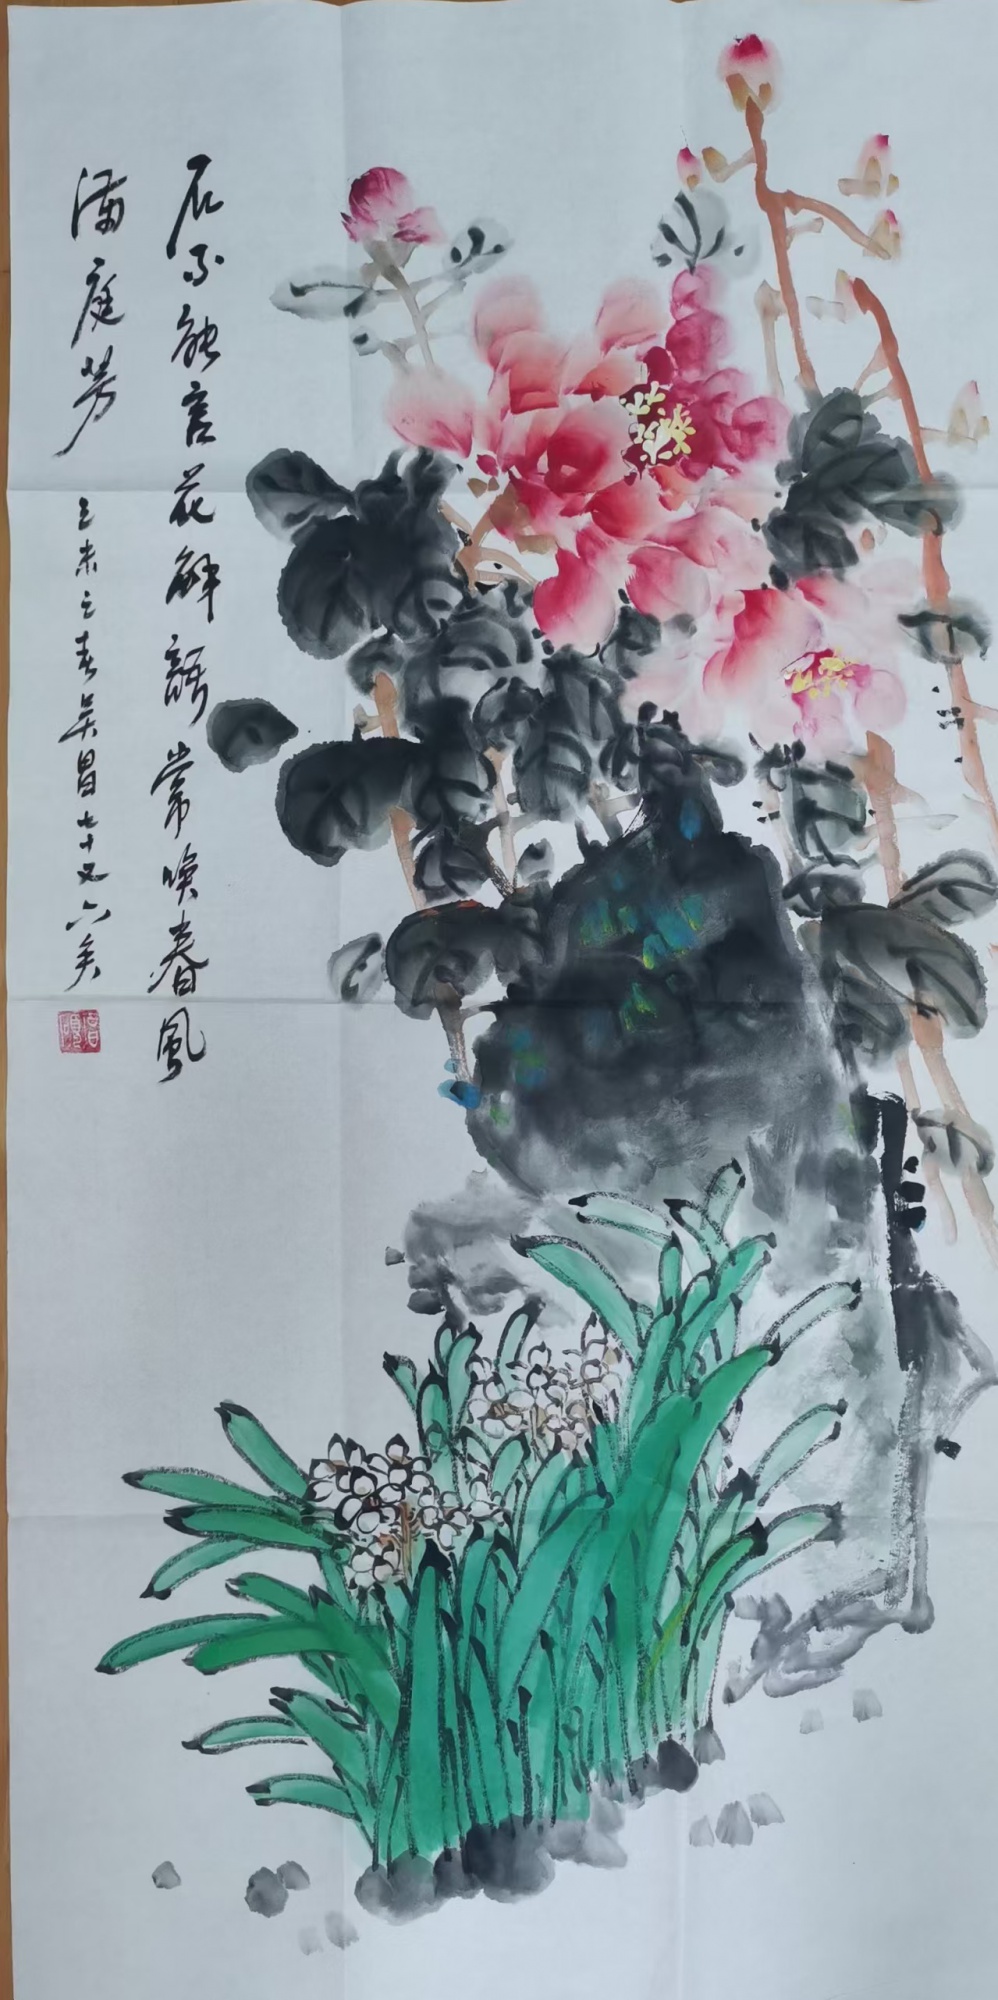 石不能言花解語常喚春風
滿庭芳
乙未之春吳昌七十又六矣